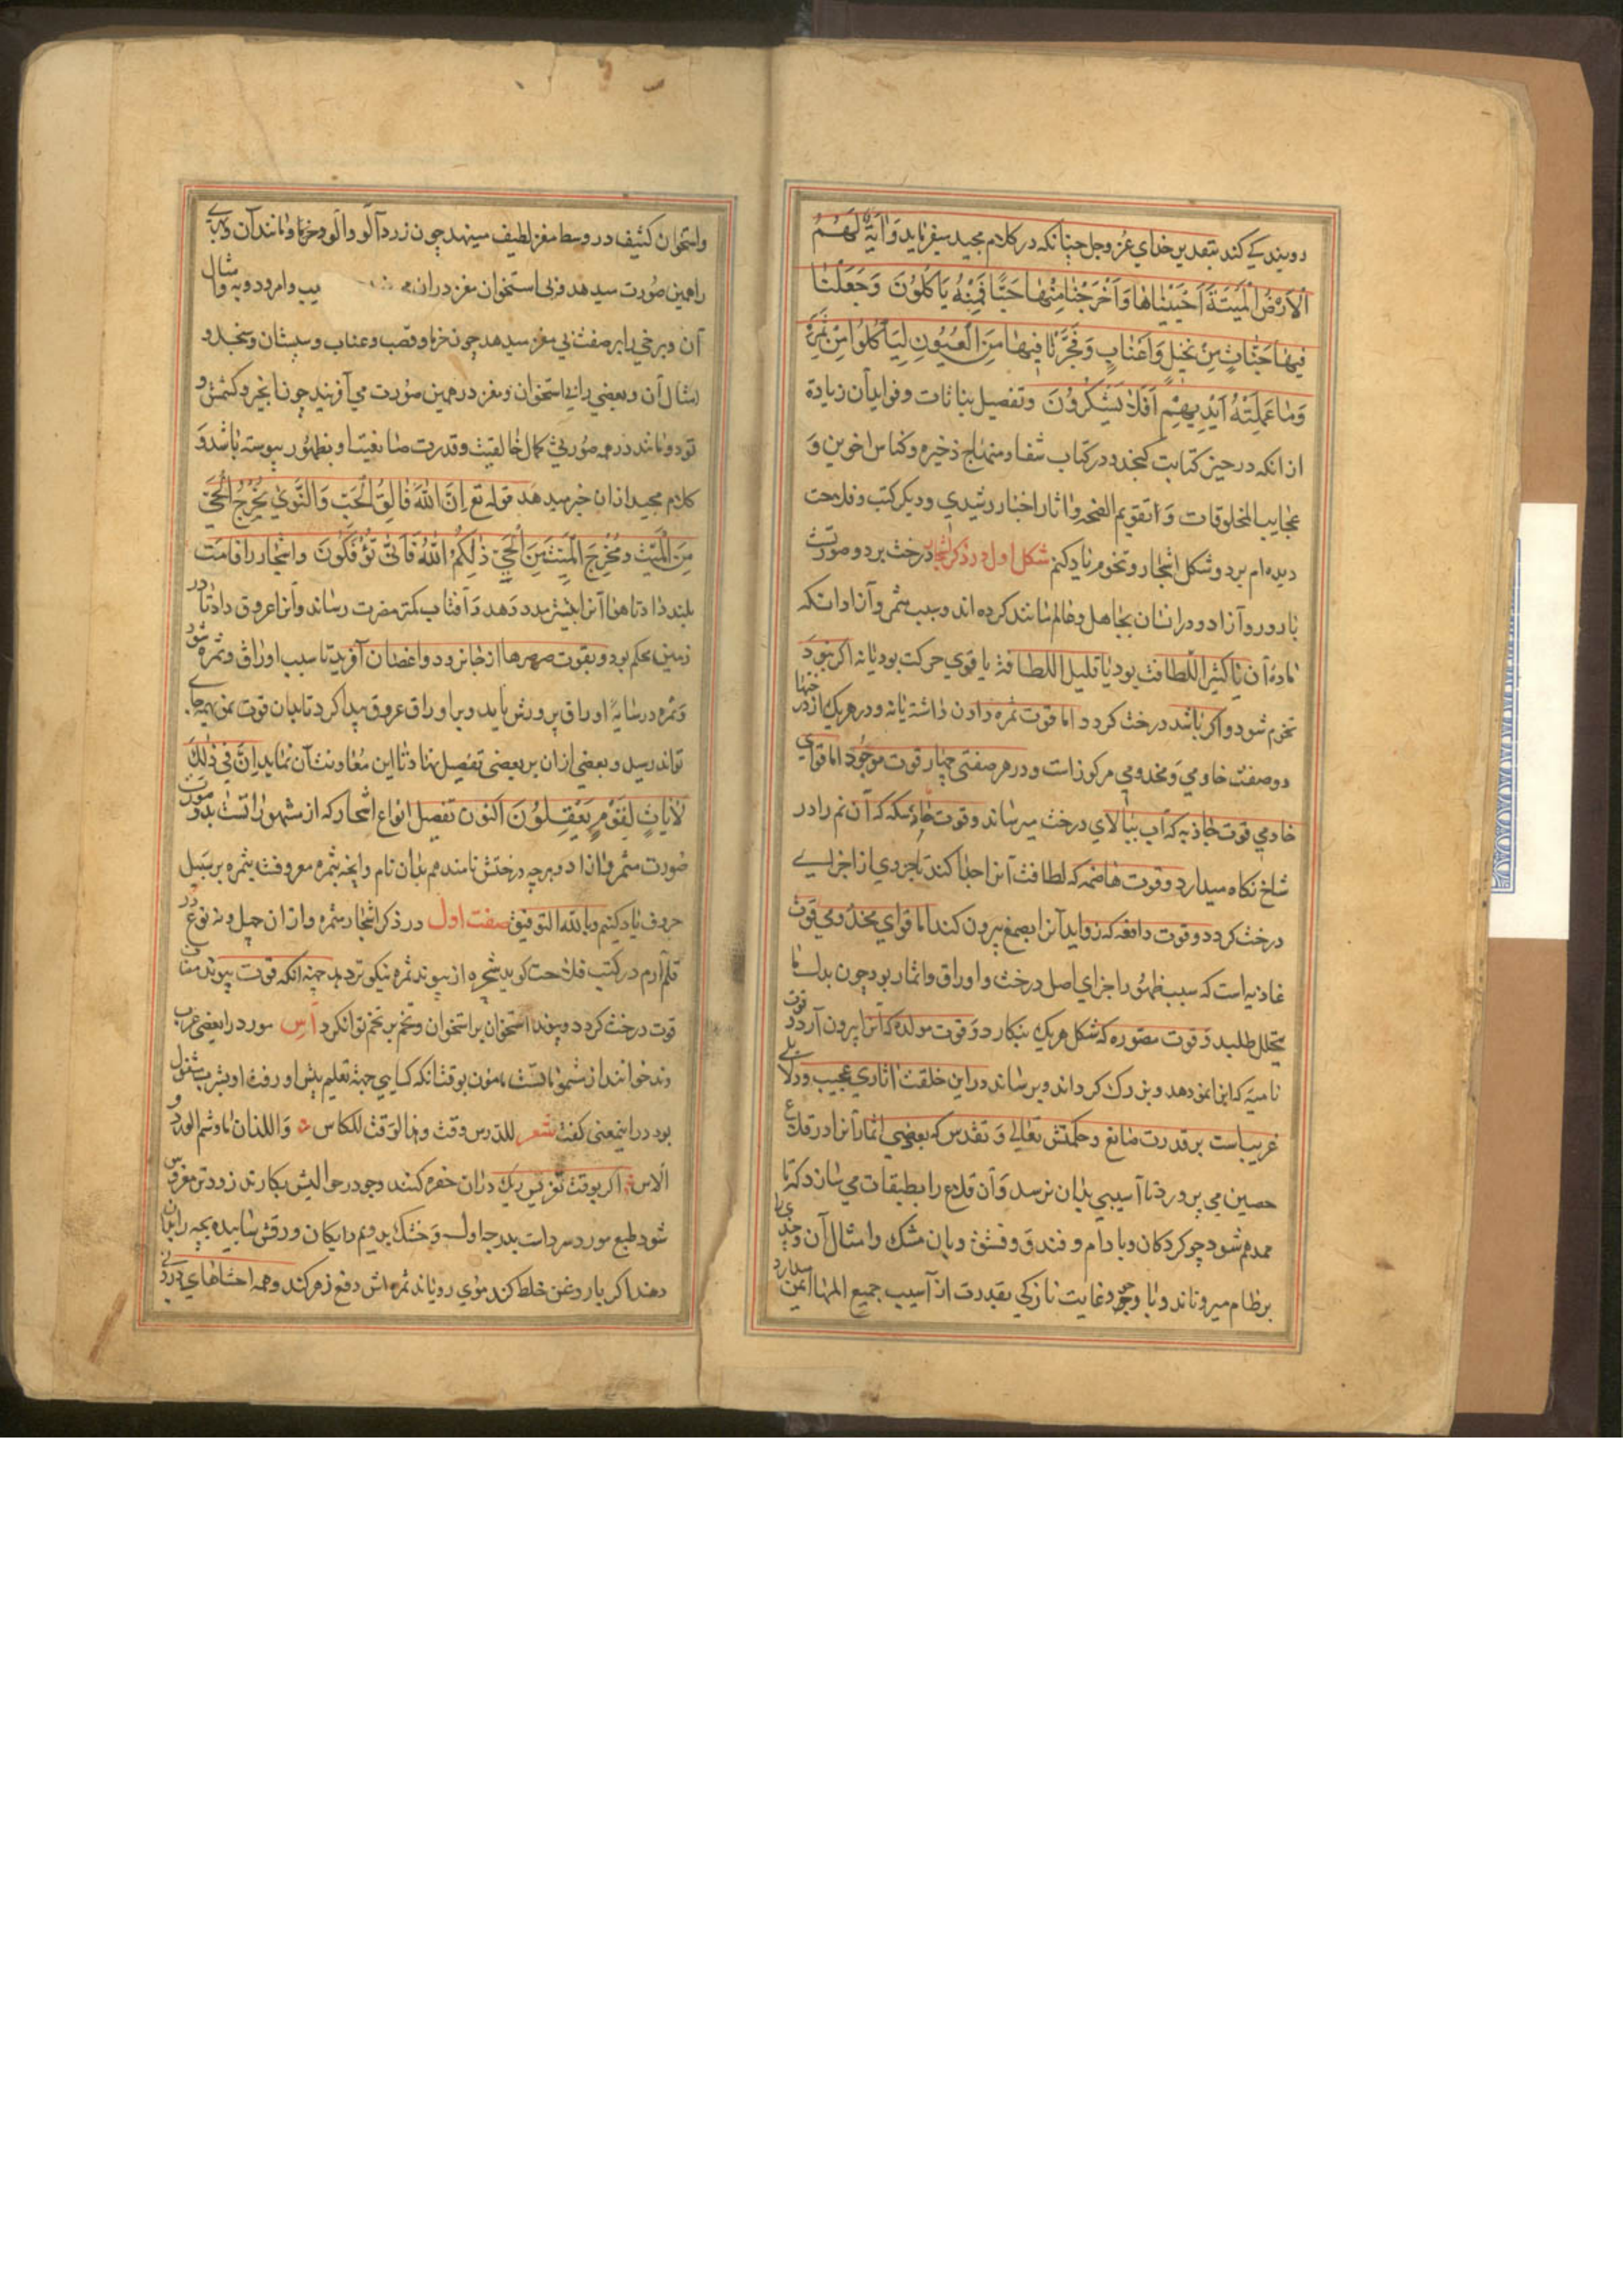 دویندکی کند بتقدیر خدای عز وجل چنانکه در کلام مجید میفرماید وَاٰیَةٌ لَهُمُ
الْاَرْضُ الْمَیْتَةُ اَحْیَیْنَاهَا وَاَخْرَجْنَا مِنْهَا حَبًّا فَمِنْهُ یَاکُلُوْنَ وَجَعَلْنَا
فِیهَا جَنَّاتٍ مِنْ نَخِیْلٍ وَاَعْنَابٍ وَفَجَّرْنَا فِیهَا مِنَ الْعُیُوْنِ لِیَاْکُلُوا مِنْ ثَمَرِهِ
وَمَا عَمِلَتْهُ اَیْدِیهِمْ اَفَلَا یَشْکُرُوْنَ وتفصیل نباتات وفواید آن زیادة
از انکه در حیز کتابت کنجد و در کتاب شفا و منهاج و ذخیره وکناس اخوین و
عجایب المخلوقات و اتقویم الصحه واثار اخبار رشیدی ودیکر کتب وفلاحت
دیده ام بر دو شکل اشجار ونخوم یاد کنم شکل اول در ذکر اشجار درخت بر دو صورتست
بارور وآزاد ودر انسان بجاهل وعالم مانند کرده اند وسبب مثمر وآزاد انکه
مادۀ آن یا کثیر اللطافت بود یا قلیل اللطافة یا قوی حرکت بود یا نه اکر نبود
نخوم شود واکر باشد درخت کردد اما قوت ثمره دادن داشته یا نه ودر هریک از درختها
دو صفت خادمی ومخدومی مرکوز است و در هر صفتی چهار قوت موجود اما قوای
خادمی قوت جاذبه که آب ببالای درخت میرساند وقوت ماسکه که آن نم را در
شاخ نکاه میدارد وقوت هاضمه که لطافت آنرا جدا کند تا جزدی از اجزای
درخت کردد وقوت دافعه که زواید آنرا بصمغ بیرون کند اما قوای مخدومی قوت
غاذیه است که سبب ظهور اجزای اصل درخت واوراق واثمار بود چون بدل ما
یتحلل طلبد وقوت مصوره که شکل هریک بنکارد وقوت مولده که آنرا بیرون آرد وقوت
نامیه که انرا نمو دهد وبزرک کرداند وبرساند در این خلقت اثاری عجیب ودلایلی
غریبست بر قدرت صانع وحکمتش تعالی وتقدس که بعضی اثمار آنرا در قلاع
حصین می پرورد تا آسیبی بدان نرسد وآن قلاع را بطبقات می سازد که تا
ممد هم شود چو کردکان وبادام وفندق وفستق وبان مشک وامثال آن وچندی را
بر ظاهر میرویاند وبا وجود غایت نازکی بقدرت از آسیب جمیع المها ایمن میدارد
واستخوان کثیف در وسط مغز لطیف مینهد چون زردآلو والو وخرما ومانند آن وبرخی
را همین صورت میدهد وبی استخوان مغز در ان یب وامرود وبه وامثال
آن وبرخی را بر صفت بی مغز میدهد چون خرما وقصب وعناب وسپستان وسنجد و
امثال آن وبعضی را بی استخوان ومغز در همین صورت می آفریند چون انجیر وکشمش و
تود ومانند در هر صورتی کمال خالقیت وقدرت صانعیت او بظهور پیوسته باشد و
کلام مجید از ان خبر میدهد قوله تع اِنَّ اللّٰهَ فَالِقُ الْحَبِّ وَالنَّوٰی یُخْرِجُ الْحَیَّ
مِنَ الْمَیِّتِ وَمُخْرِجُ الْمَیِّتِ مِنَ الْحَیِّ ذٰلِکُمُ اللّٰهُ فَاَنّٰی تُؤْفَکُوْنَ واشجار را قامت
بلند داد تا هوا آنرا بیشتر مدد دهد و آفتاب کمتر مضرت رساند وانرا عروق داد تا در
زمین محکم بود وبقوت صرصرها از جا نرود واغصان آفرید تا سبب اوراق وثمره شود
وثمره در سایۀ اوراق پرورش یابد وبر اوراق عروق پیدا کرد تا بدان قوت نمو بهمه جای
تواند رسید وبعضی از ان بر بعضی تفضیل نهاد تا این معاونت آن نماید اِنَّ فِی ذٰلِکَ
لَاٰیَاتٍ لِقَوْمٍ یَعْقِلُوْنَ اکنون تفصیل انواع اشجار که از مشهوراتست بدو صورت
صورت مثمر وازاد وهرچه درختش نامند هم بدان نام وانچه بثمره معروفست بثمره بر سبیل
حروف یاد کنیم وبالله التوفیق صفت اول در ذکر اشجار مثمره واز ان چهل ونه نوع در
قلم آرم در کتب فلاحت کوید شجره از پیوند ثمره نیکوتر دهد جهته انکه قوت پیوند مضاف
قوت درخت کردد وپیوند استخوان بر استخوان وتخم بر تخم توان کرد آس مورد را بعضی عرب
رند خوانند از مشموماتست مامون بوقت انکه کسایی جهة تعلیم پیش او رفت او بشرب مشغول
بود در اینمعنی کفت شعر للدرس وقت وهذا الوقت للکاس وللندمان وشم الورد و
الاس اکر بوقت غرس ریک در ان حفره کنند وجو در حوالیش بکارند زودتر مغروس
شود طبع مورد سرد است بدرجه اول وخشک بدویم دایکان ورقش سابیده بچه را بدان
دهند اکر با روغن خلط کند موی رویاند ثمره اش دفع زهر کند وهمه احشاهای درونی